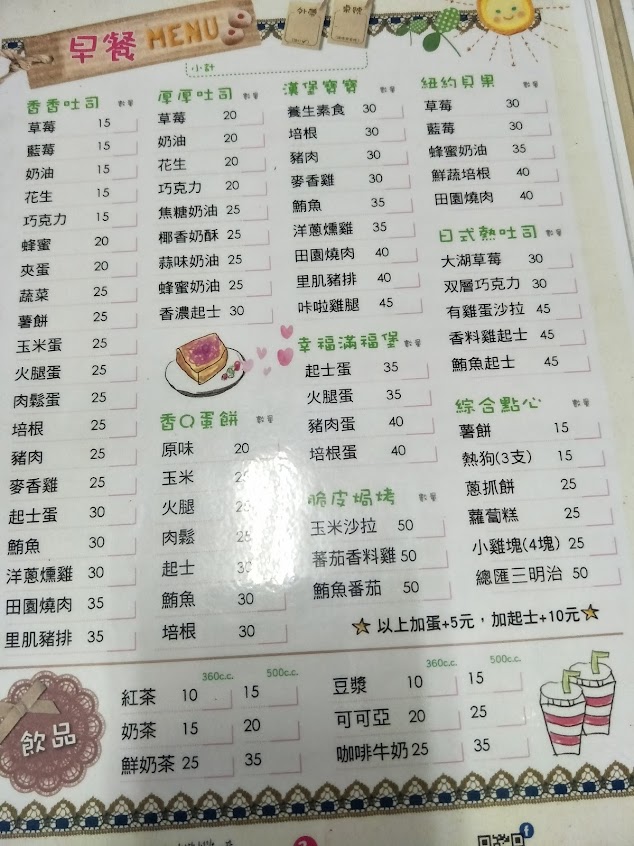 外帶
桌號
早餐 MENU
小計
香香吐司 數量
草莓 15
藍莓 15
奶油 15
花生 15
巧克力 15
蜂蜜 20
夾蛋 20
蔬菜 25
薯餅 25
玉米蛋 25
火腿蛋 25
肉鬆蛋 25
培根 25
豬肉 25
麥香雞 25
起士蛋 30
鮪魚 30
洋蔥燻雞 30
田園燒肉 35
里肌豬排 35
厚厚吐司 數量
草莓 20
奶油 20
花生 20
巧克力 20
焦糖奶油 25
椰香奶酥 25
蒜味奶油 25
蜂蜜奶油 25
香濃起士 30
香Q蛋餅 數量
原味 20
玉米
火腿
肉鬆
起士
鮪魚 30
培根 30
漢堡寶寶 數量
養生素食 30
培根 30
豬肉 30
麥香雞 30
鮪魚 35
洋蔥燻雞 35
田園燒肉 40
里肌豬排 40
咔啦雞腿 45
幸福滿福堡 數量
起士蛋 35
火腿蛋 35
豬肉蛋 40
培根蛋 40
脆皮焗烤 數量
玉米沙拉 50
蕃茄香料雞 50
鮪魚番茄 50
紐約貝果 數量
草莓 30
藍莓 30
蜂蜜奶油 35
鮮蔬培根 40
田園燒肉 40
日式熱吐司 數量
大湖草莓 30
双層巧克力 30
有雞蛋沙拉 45
香料雞起士 45
鮪魚起士 45
綜合點心 數量
薯餅 15
熱狗(3支) 15
蔥抓餅 25
蘿蔔糕 25
小雞塊(4塊) 25
總匯三明治 50
以上加蛋+5元，加起士+10元
飲品
360c.c. 500c.c.
紅茶 10 15
奶茶 15 20
鮮奶茶 25 35
360c.c. 500c.c.
豆漿 10 15
可可亞 20 25
咖啡牛奶 25 35